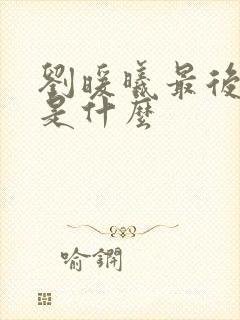 劉暖曦最後
是什麼
喻鐗